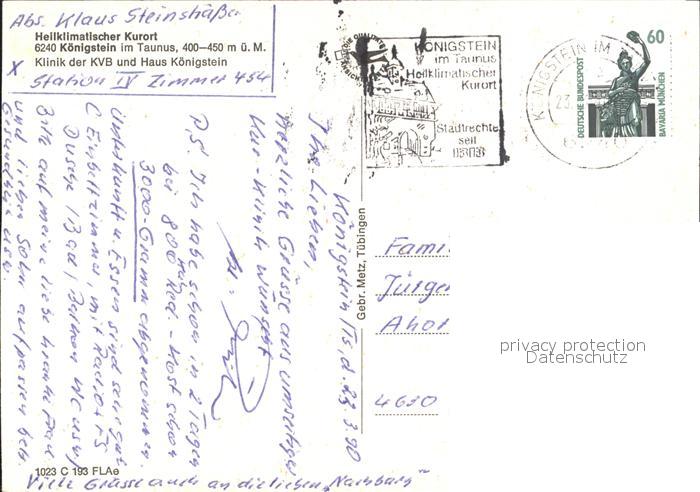 Abs. Klaus Steinsträßer
Heilklimatischer Kurort
6240 Königstein im Taunus, 400—450 m ü. M.
Klinik der KVB und Haus Königstein
X Station IV Zimmer 454
KÖNIGSTEIN
im Taunus
Heilklimatischer
Kurort
Stadtrechte
seit
KÖNIGSTEIN IM
23.
60
DEUTSCHE BUNDESPOST
BAVARIA MÜNCHEN
Königstein/Ts, d. 23.3.90
Ihr Lieben,
Herzliche Grüsse aus umseitiger
Kur-Klinik wünscht
P.S. Ich habe schon in 2 Tagen
bei 800 Red-Kost schon
3000 Gramm abgenommen.
Unterkunft u. Essen sind sehr gut
( Einbettzimmer, mit Radio + FS
Dusche, Bad, WC usw)
Bitte auf meine liebe kranke Frau
und lieben Sohn aufpassen bei
usw.
Viele Grüsse auch an die lieben „Nachbarn"
Gebr. Metz, Tübingen
Fami
Jürge
Ahor
4630
privacy protection
Datenschutz
1023 C 193 FLAe